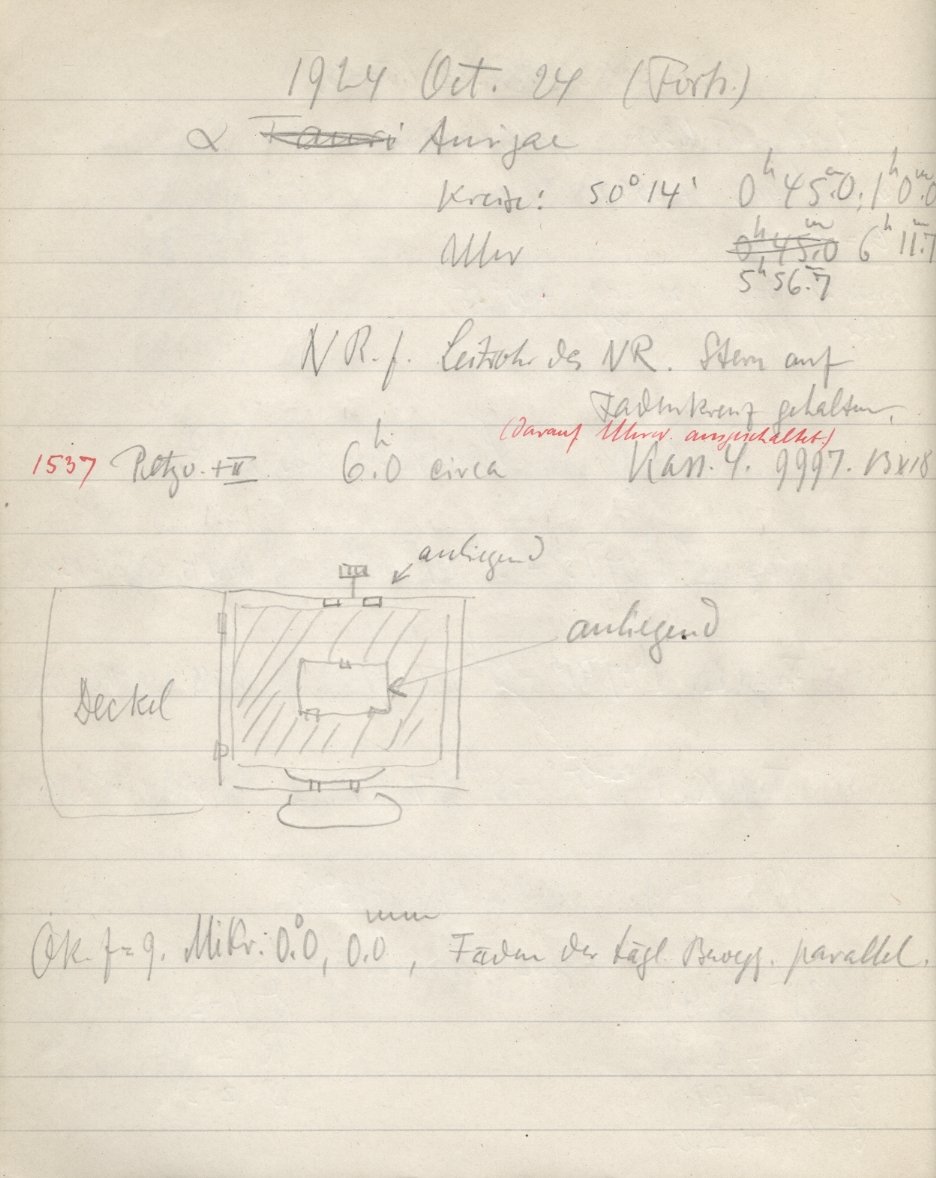 1924 Oct. 24 (Forts.)
α Tauri Aurigae
Kreise: 50° 14' 0ʰ 45ᵐ.0; 1ʰ 0ᵐ.0
Uhr 0ʰ 45ᵐ.0 6ʰ 11ᵐ.7
5ʰ 56ᵐ.7
NR. f. Leitrohr des NR. Stern auf
Fadenkreuz gehalten.
(darauf Uhrw. ausgeschaltet.)
1537 Petzv. + II 6ʰ.0 circa Kass. 4. 9997. 13x18
anliegend
anliegend
Deckel
Ok. f=9. Mikr: 0°.0, 0.0 mm, Fäden der tägl. Bewegg. parallel.